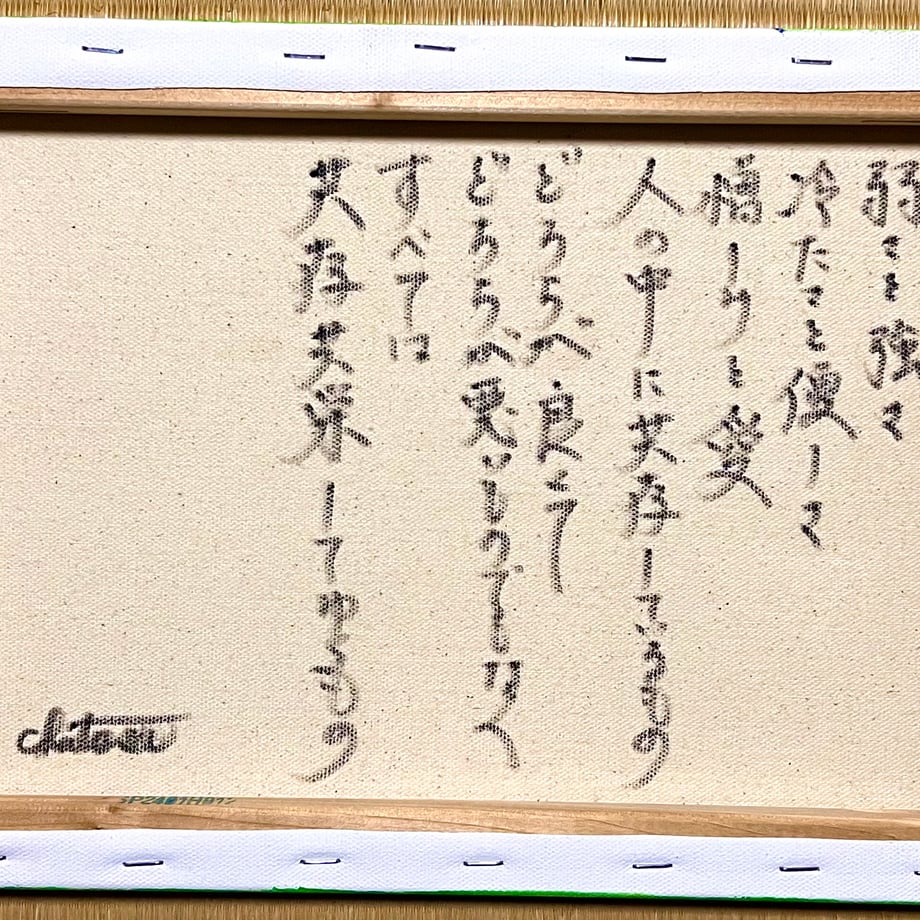 弱さと強さ
冷たさと優しさ
憎しみと愛
人の中に共存しているもの
どちらが良くて
どちらが悪いものでもなく
すべては
共存共栄してゆくもの
chitose
SP2401H912